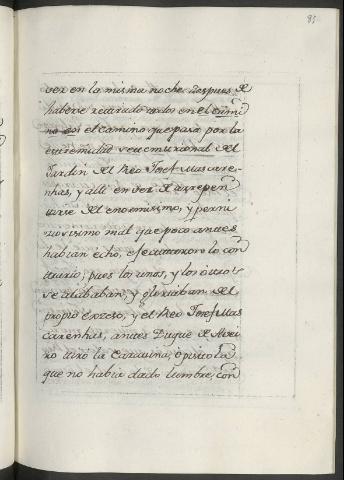 85
ver en la misma noche despues de
haberse retirado todos en el cami
no con el camino que pasa por la
extremidad septentrional del
Jardin del Reo Josef Mascare-
nhas, y alli en vez de arrepen
tirse del enormisimo, y perni
ciosisimo mal que poco antes
habian echo, executaron lo con
trario; pues los unos, y los otros
se alababan, y gloriaban del
propio exceso, y el Reo Josef Mas
carenhas, antes Duque de Avei
ro tiró la Caravina, ó pistola
que no habia dado lumbre, con